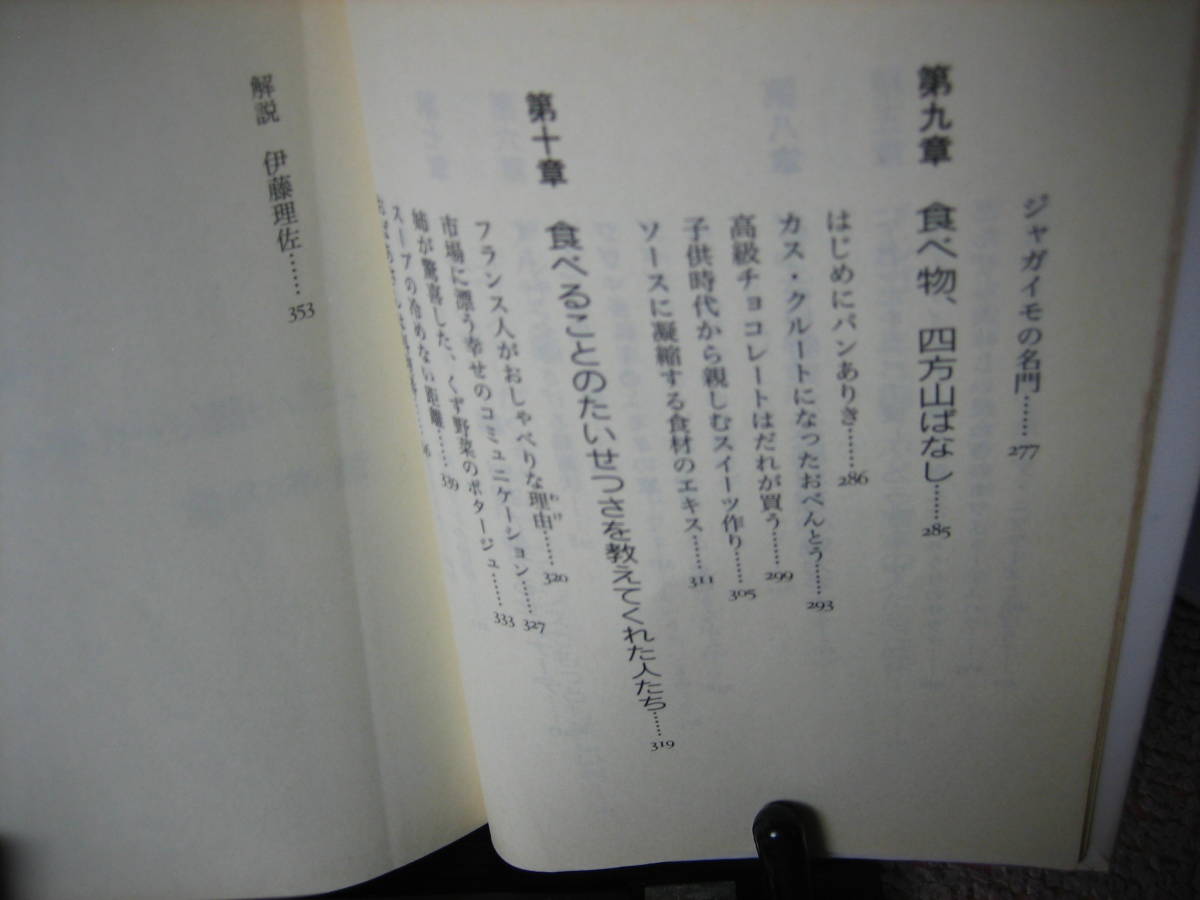 ジャガイモの名門……277
第九章　食べ物、四方山ばなし……285
はじめにパンありき……286
カス・クルートになったおべんとう……293
高級チョコレートはだれが買う……299
子供時代から親しむスイーツ作り……305
ソースに凝縮する食材のエキス……311
第十章　食べることのたいせつさを教えてくれた人たち……319
フランス人がおしゃべりな理由……320
わけ
市場に漂う幸せのコミュニケーション……327
姉が驚喜した、くず野菜のポタージュ……333
スープの冷めない距離……339
解説　伊藤理佐……353